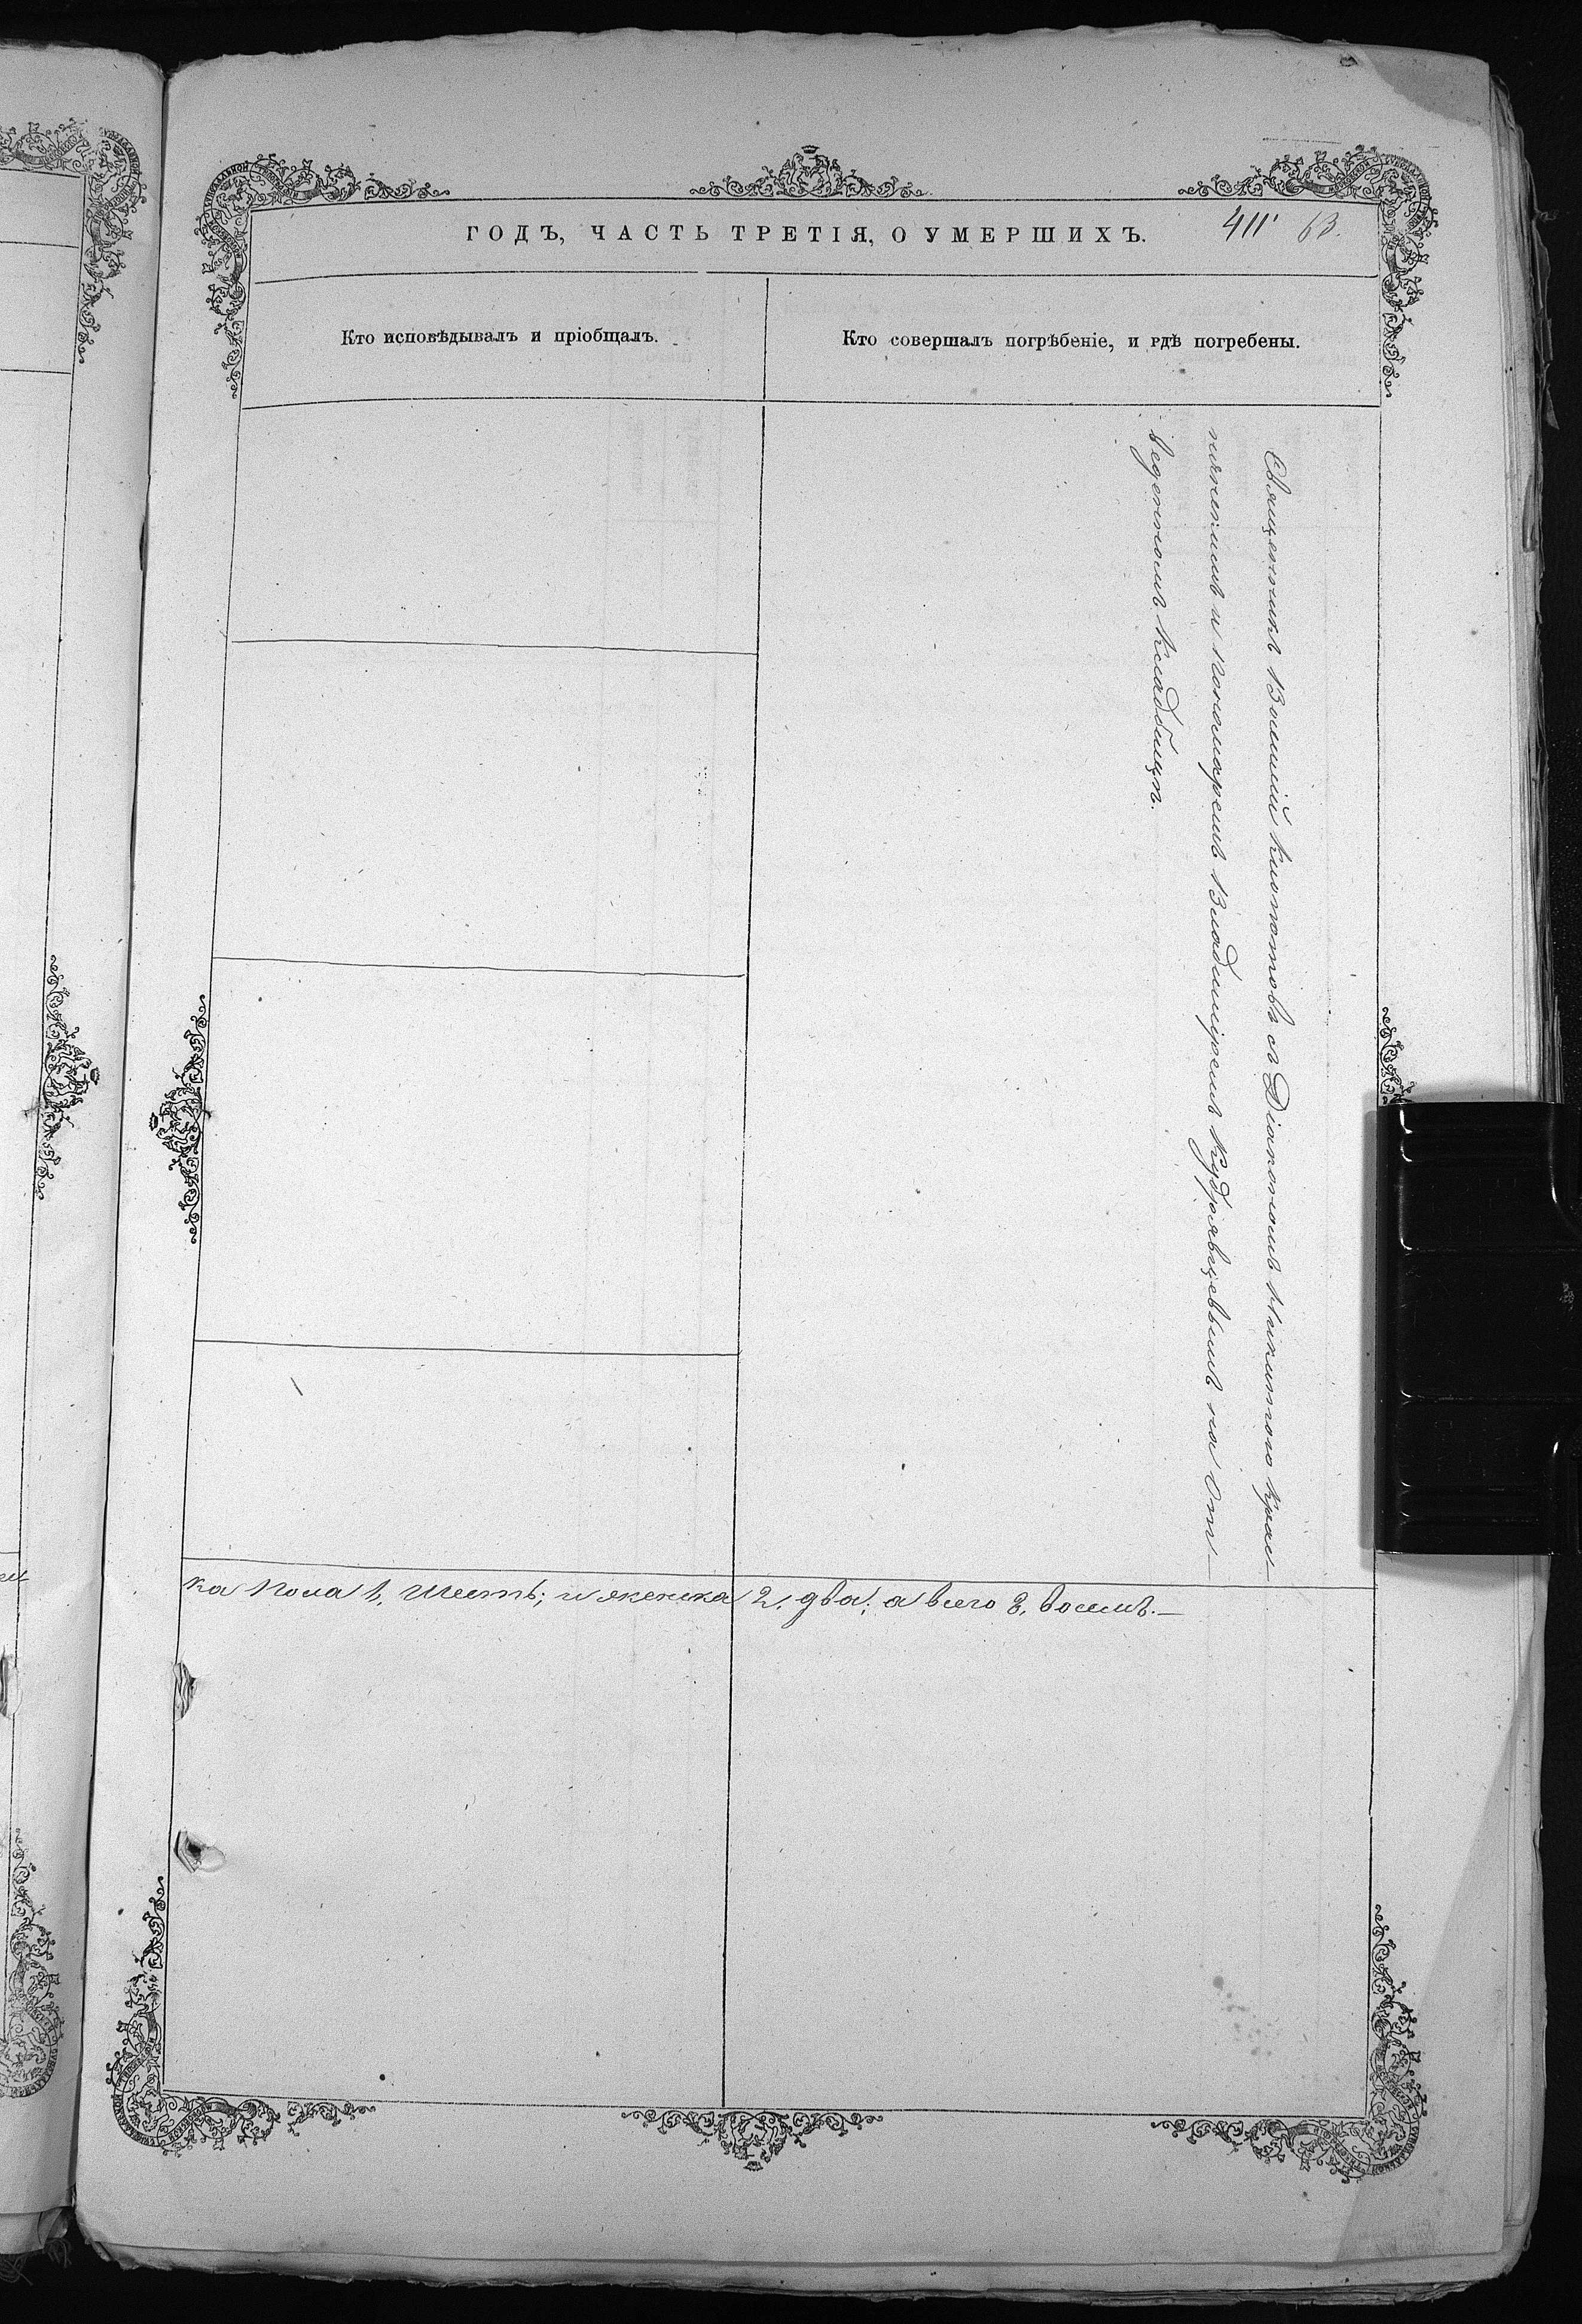 ГОДЪ, ЧАСТЬ ТРЕТІЯ, О УМЕРШИХЪ.
411 63.
Кто исповѣдывалъ и пріобщалъ.
Кто совершалъ погрѣбеніе, и гдѣ погребены.
Священникъ Василій Клопотовъ съ Діакономъ Никитою Крас-
нянскимъ и пономаремъ Владиміремъ Кудрявцевымъ на От-
веденномъ Кладбищѣ.
ка пола 6, шесть; и женска 2, два; а всего 8, восемь.—